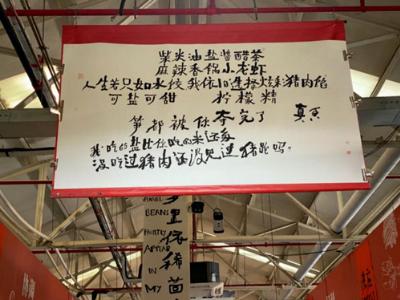 柴米油盐酱醋茶
麻辣香锅小龙虾
人生若只如水饺 我依旧选择猪肉馅
可盐可甜 柠檬精
笋都被你夺完了 真香
我吃的盐比你吃的米还多
没吃过猪肉还没见过猪跑吗。
里依稀茴
BEANS
FAINTLY
APPEAR
IN
MY